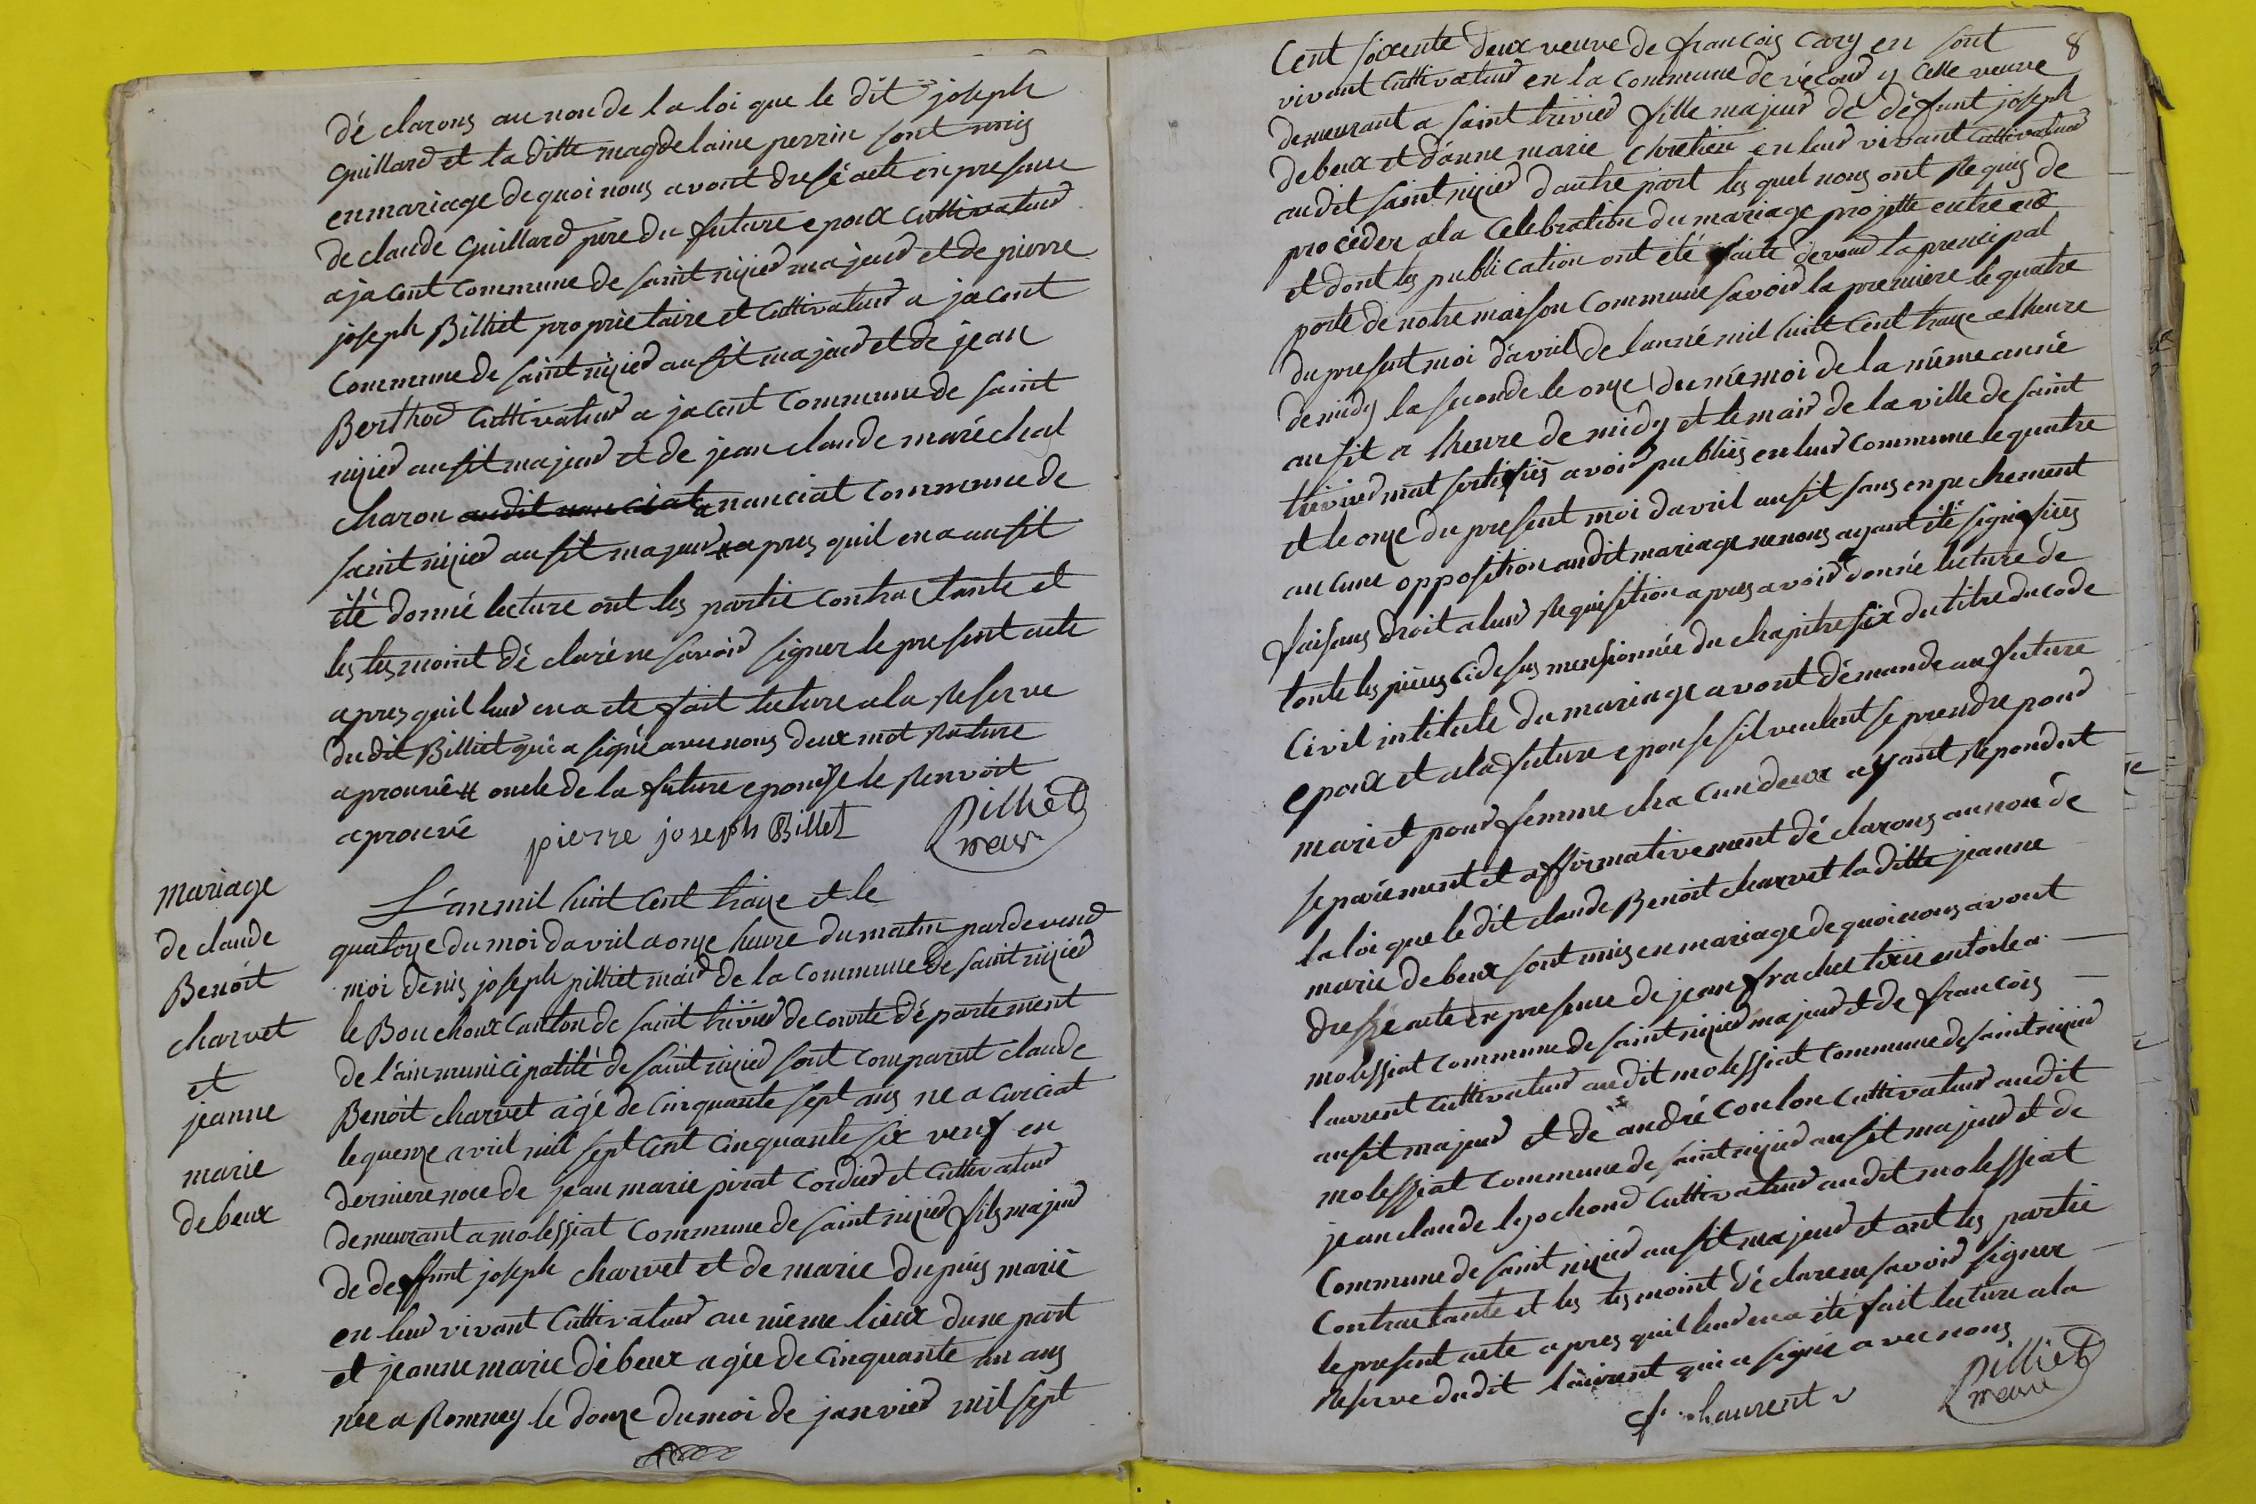 dé clarons au non de la loi que le dit joseph
guillard et la ditte magdelaine perrin sont unis
en mariage de quoi nous avont dresé acte en presence
de claude guillard pere du future epoux cultivateur
a jacent commune de saint nizier majeur et de pierre
joseph Billiet proprietaire et cultivateur a jacent
commune de saint nizier ausit majeur et de jean
Berthod cultivateur a jacent commune de saint
nizier ausit majeur et de jean claude maréchal
charon audit nanciat a nanciat commune de
saint nizier ausit majeur # apres quil en a ausit
été donné lecture ont les partie contractante et
les tesmoint dé claré ne savoir signer le present acte
apres quil leur en a ete fait lecture a la Reserve
du dit Billiet qui a signé avec nous deux mot Rature
aprouvé # oncle de la future epouse le Renvoit
aprouvé
pierre joseph Billet
pilliet
maire
mariage
de claude
Benoit
charvet
et
jeanne
marie
debeux
L'an mil huit cent traize et le
quatorze du moi davril a onze heure du matin pardevend
moi denis joseph pilliet maire de la commune de saint nizier
le Bouchoux canton de saint trivier de courte dé partement
de l'ain municipalité de saint nizier sont comparut claude
Benoit charvet agé de cinquante sept ans ne a curciat
le quinze avril mil sept cent cinquante six veuf en
derniere noce de jean marie pirat cordier et cultivateur
demeurant a molessiat commune de saint nizier fils majeur
de deffunt joseph charvet et de marie dupuis marié
en leur vivant cultivateur au même lieux dune part
et jeanne marie débeux agée de cinquante un ans
née a Romney le douze du moi de janvier mil sept
8
Cent soixente deux veuve de francois cary en sont
vivant cultivateur en la commune de véscour y celle veuve
demeurant a saint trivier fille majeur de défunt joseph
debeux et d'anne marie chretien en leur vivant cultivateur
audit saint nizier dautre part les quel nous ont Requis de
procéder a la celebration du mariage projette entre eux
et dont les publication ont été faite devend la principal
porte de notre maison commune savoir la premiere le quatre
du present moi d'avril de lanné mil huit cent traize a lheure
de midy la seconde le onze du mémoi de la même anné
ausit a lheure de midy et le mair de la ville de saint
trivier mat sertifiés avoir publiés en leur commune le quatre
et le onze du present moi davril ausit sans enpechement
aucune opposition audit mariage ne nous ayant été signifiés
faisans droit a leur Requisition apres avoir donné lecture de
toute les pieces cidesus mensionnée du chapitre six du titre du code
Civil intitule du mariage avont démande au future
epoux et a la future epouse sil veulent se prendre pour
mari et pour femme chacun deux ayant Repondut
separément et affirmativement dé clarons au non de
la loi que le dit claude Benoit charvet la ditte jeanne
marie debeux sont unis en mariage de quoi nous avont
dressé acte en presence de jean frachet tixie entoile a
molessiat commune de saint nizier majeur et de francois
laurent cultivateur audit molessiat commune de saint nizier
ausit majeur et de andré coulon cultivateur audit
molessiat commune de saint nizier ausit majeur et de
jean claude lysochond cultivateur audit molessiat
Commune de saint nizier ausit majeur et ont les partie
Contractante et les tesmoint dé clare ne savoir signer
le present acte apres quil leur en a été fait lecture a la
Reserve dudit laurent qui a signé avec nous
f. laurent
pilliet
maire